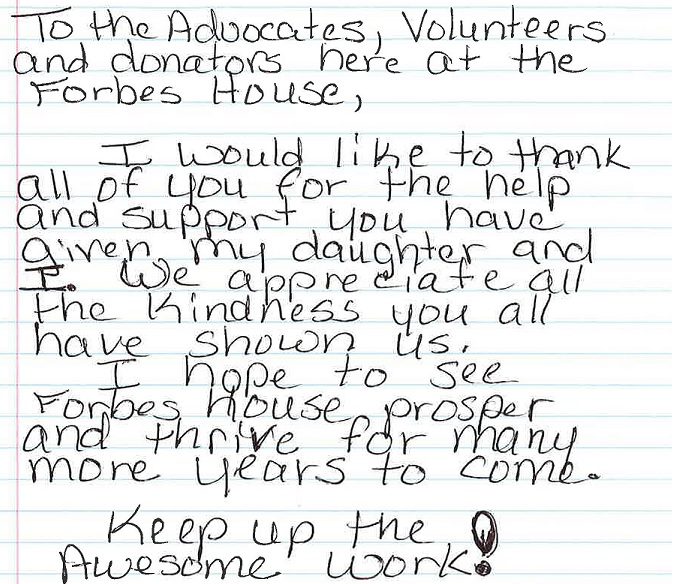 To the Advocates, Volunteers
and donators here at the
Forbes House,
I would like to thank
all of you for the help
and support you have
given my daughter and
I. We appreciate all
the kindness you all
have shown us.
I hope to see
Forbes House prosper
and thrive for many
more years to come.
Keep up the
Awesome work!